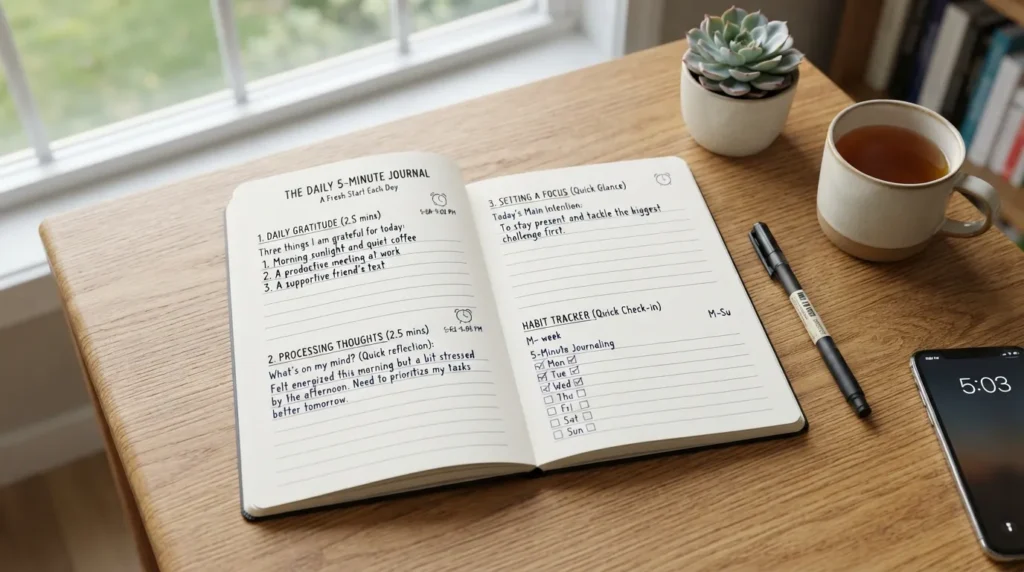 THE DAILY 5-MINUTE JOURNAL
A Fresh Start Each Dey
1. DAILY GRATITUDE (2.5 mins)
Three things I am grateful for today:
1. Morning sunlight and quiet coffee
2. A prodoctive meeting at work
3. A supportive friend's text
2. PROCESSING THOUGHTS (2.5 mins)
What's on my mind? (Quick reflection):
Felt energized this morning but a bit stressed
by the afternoon. Need to prioritize my tasks
better tomorrow.
3. SETTING A FOCUS (Quick Glance)
Today's Main Intention:
To stay present and tackle the biggest
challenge first.
HABIT TRACKER (Quick Check-in)
M-Su
M- week
5-Minute Journaling
Mon
Tue
Wed
Thu
Fri
Sat
Sun
5:03